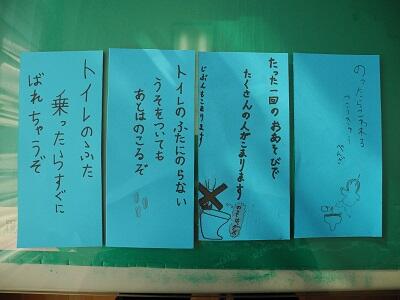 のったらこわれる
たった一回の おあそびで
たくさんの人がこまります
じぶんもこまります
トイレのふたにのらない
うそをついても
あとはのこるぞ
トイレのふた
乗ったらすぐに
ばれちゃうぞ